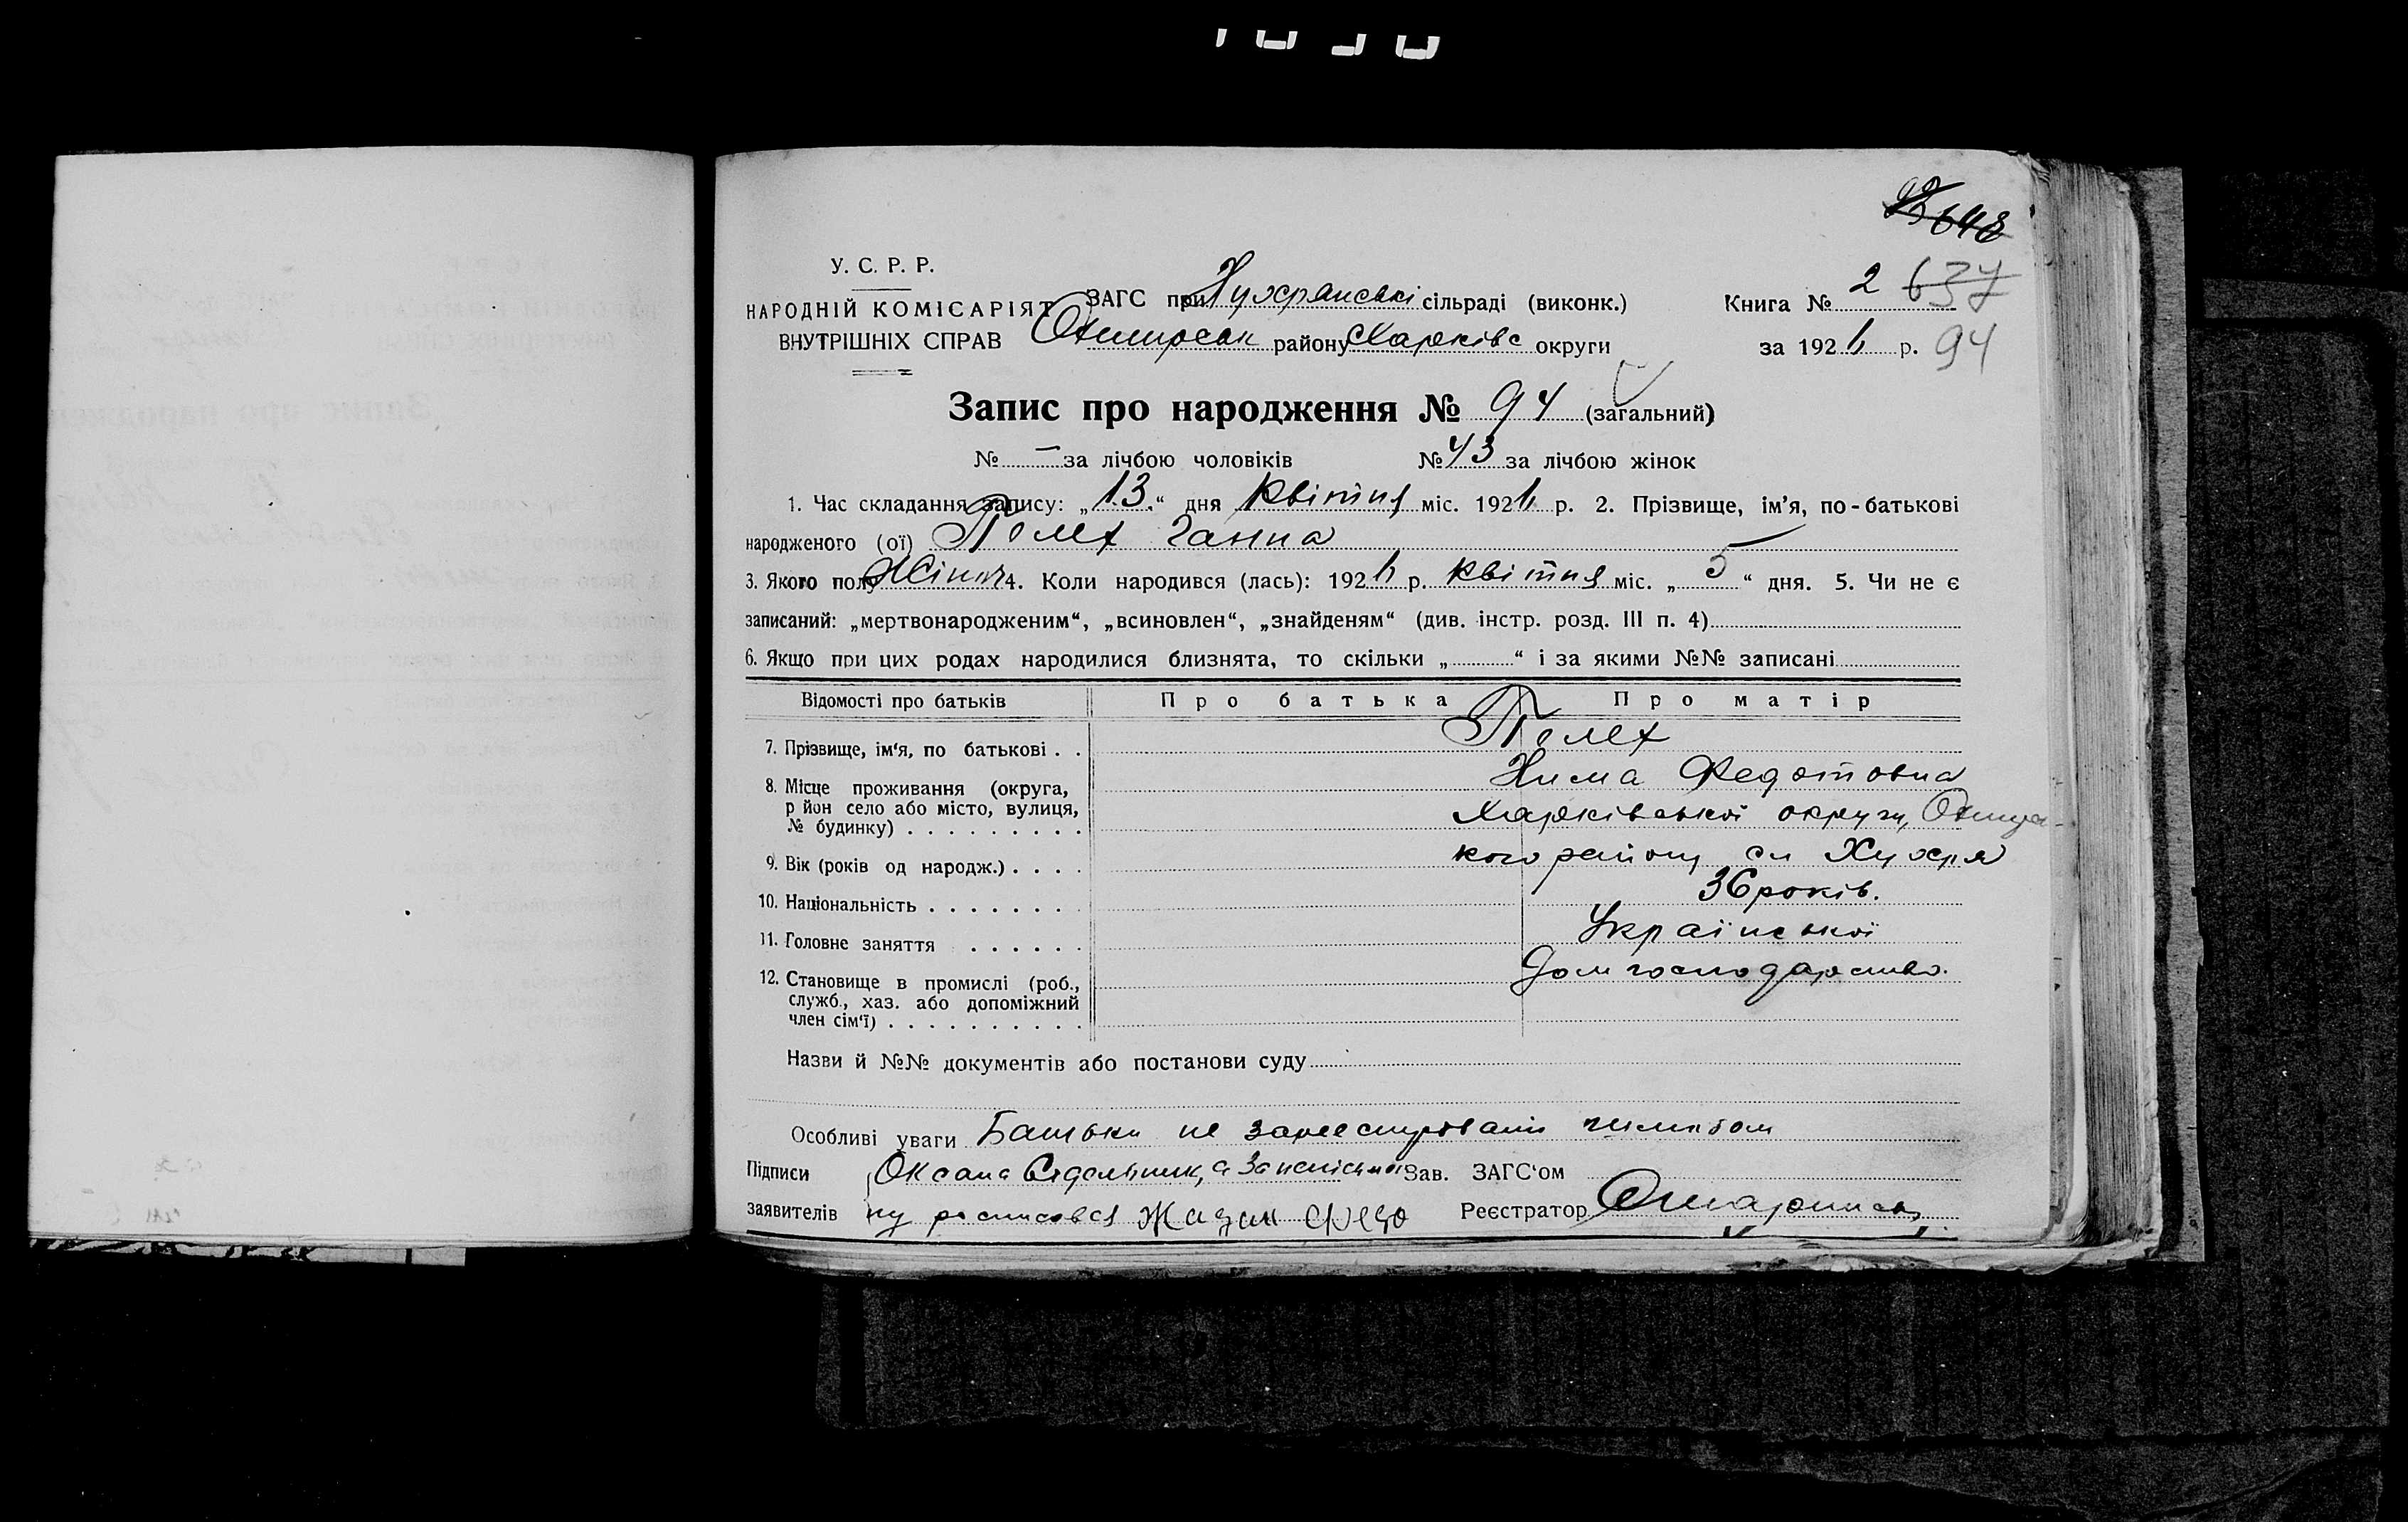 637
У. С. Р. Р.
НАРОДНІЙ КОМІСАРІЯТ
ВНУТРІШНІХ СПРАВ
ЗАГС при Хухрянські сільраді (виконк.)
району Харківс округи
Книга № 2
за 1926 р. 94
Запис про народження № 94 (загальний)
№ – за лічбою чоловіків № 43 за лічбою жінок
1. Час складання запису: „13.“ дня квітня міс. 1926 р. 2. Прізвище, ім’я, по-батькові
народженого (ої) Ганна
3. Якого полу Жіноч 4. Коли народився (лась): 1926 р. квітня міс. „5“ дня. 5. Чи не є
записаний: „мертвонародженим“, „всиновлен“, „знайденям“ (див. інстр. розд. III п. 4)
6. Якщо при цих родах народилися близнята, то скільки „ “ і за якими №№ записані
Відомості про батьків Про батька Про матір
7. Прізвище, ім‘я, по батькові . .
Федотовна
8. Місце проживання (округа,
р йон село або місто, вулиця,
№ будинку) . . . . . . . . .
Харківської округи,
кого району сл Хухря
9. Вік (років од народж.) . . . .
36 років.
10. Національність . . . . . . .
Української
11. Головне заняття . . . . . .
Дом господарство.
12. Становище в промислі (роб.,
служб., хаз. або допоміжний
член сім‘ї) . . . . . . . . . .
Назви й №№ документів або постанови суду
Особливі уваги Батьки не зареестровані шлюбом
Підписи Оксана а за неписьмен Зав. ЗАГС‘ом
заявителів ну росписався Реєстратор